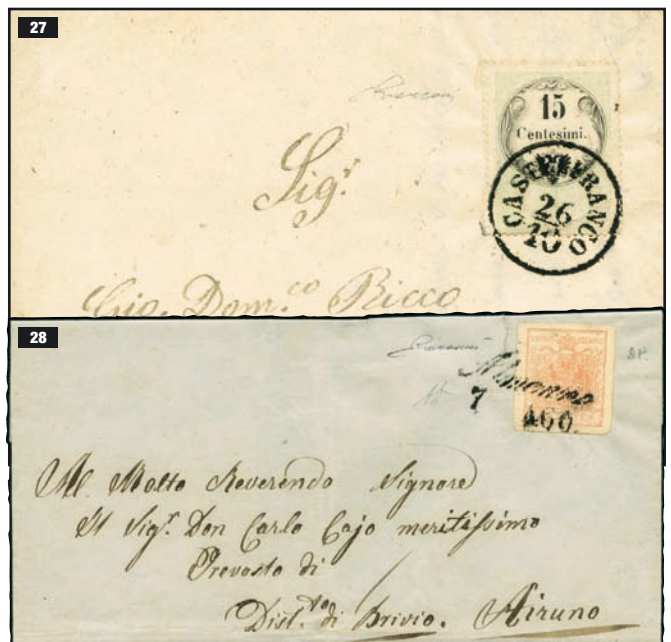 27
15
Centesimi.
CASTELFRANCO
26
10
Sig.r
Gio. Dom.co Ricco
28
7 AGO.
Al Molto Reverendo Signore
Il Sig.r Don Carlo Cajo meritissimo
Prevosto di
Dist.to di Brivio. Airuno